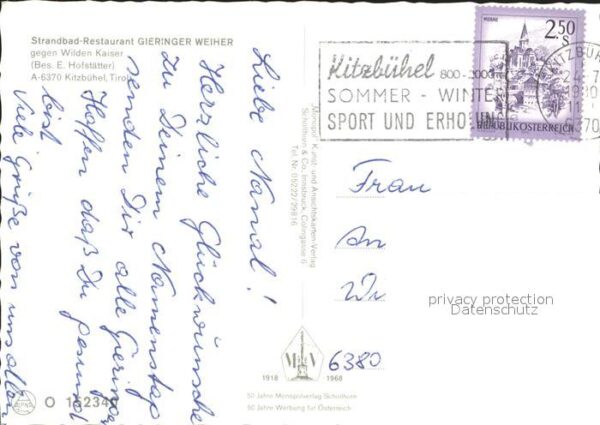 Strandbad-Restaurant GIERINGER WEIHER
gegen Wilden Kaiser
(Bes. E. Hofstätter)
A-6370 Kitzbühel, Tirol
Liebe Mama!
Herzliche Glückwünsche
zu Deinem Namenstag
senden Dir alle Gieringer
Hoffen daß Du gesund
bist
Viele Grüße von uns allen
"Monopol" Kunst- und Ansichtskarten-Verlag
Schöllhorn & Co., Innsbruck, Colingasse 6
Tel. Nr. 05222/29816
Kitzbühel 800-2000
SOMMER - WINTER
SPORT UND ERHOLUNG
MURAU
2.50
S
REPUBLIK ÖSTERREICH
KITZBÜH
24.-7
11
370
Frau
An
Wi
6380
privacy protection
Datenschutz
1918 1968
50 Jahre Monopolverlag Schöllhorn
50 Jahre Werbung für Österreich
O 152340